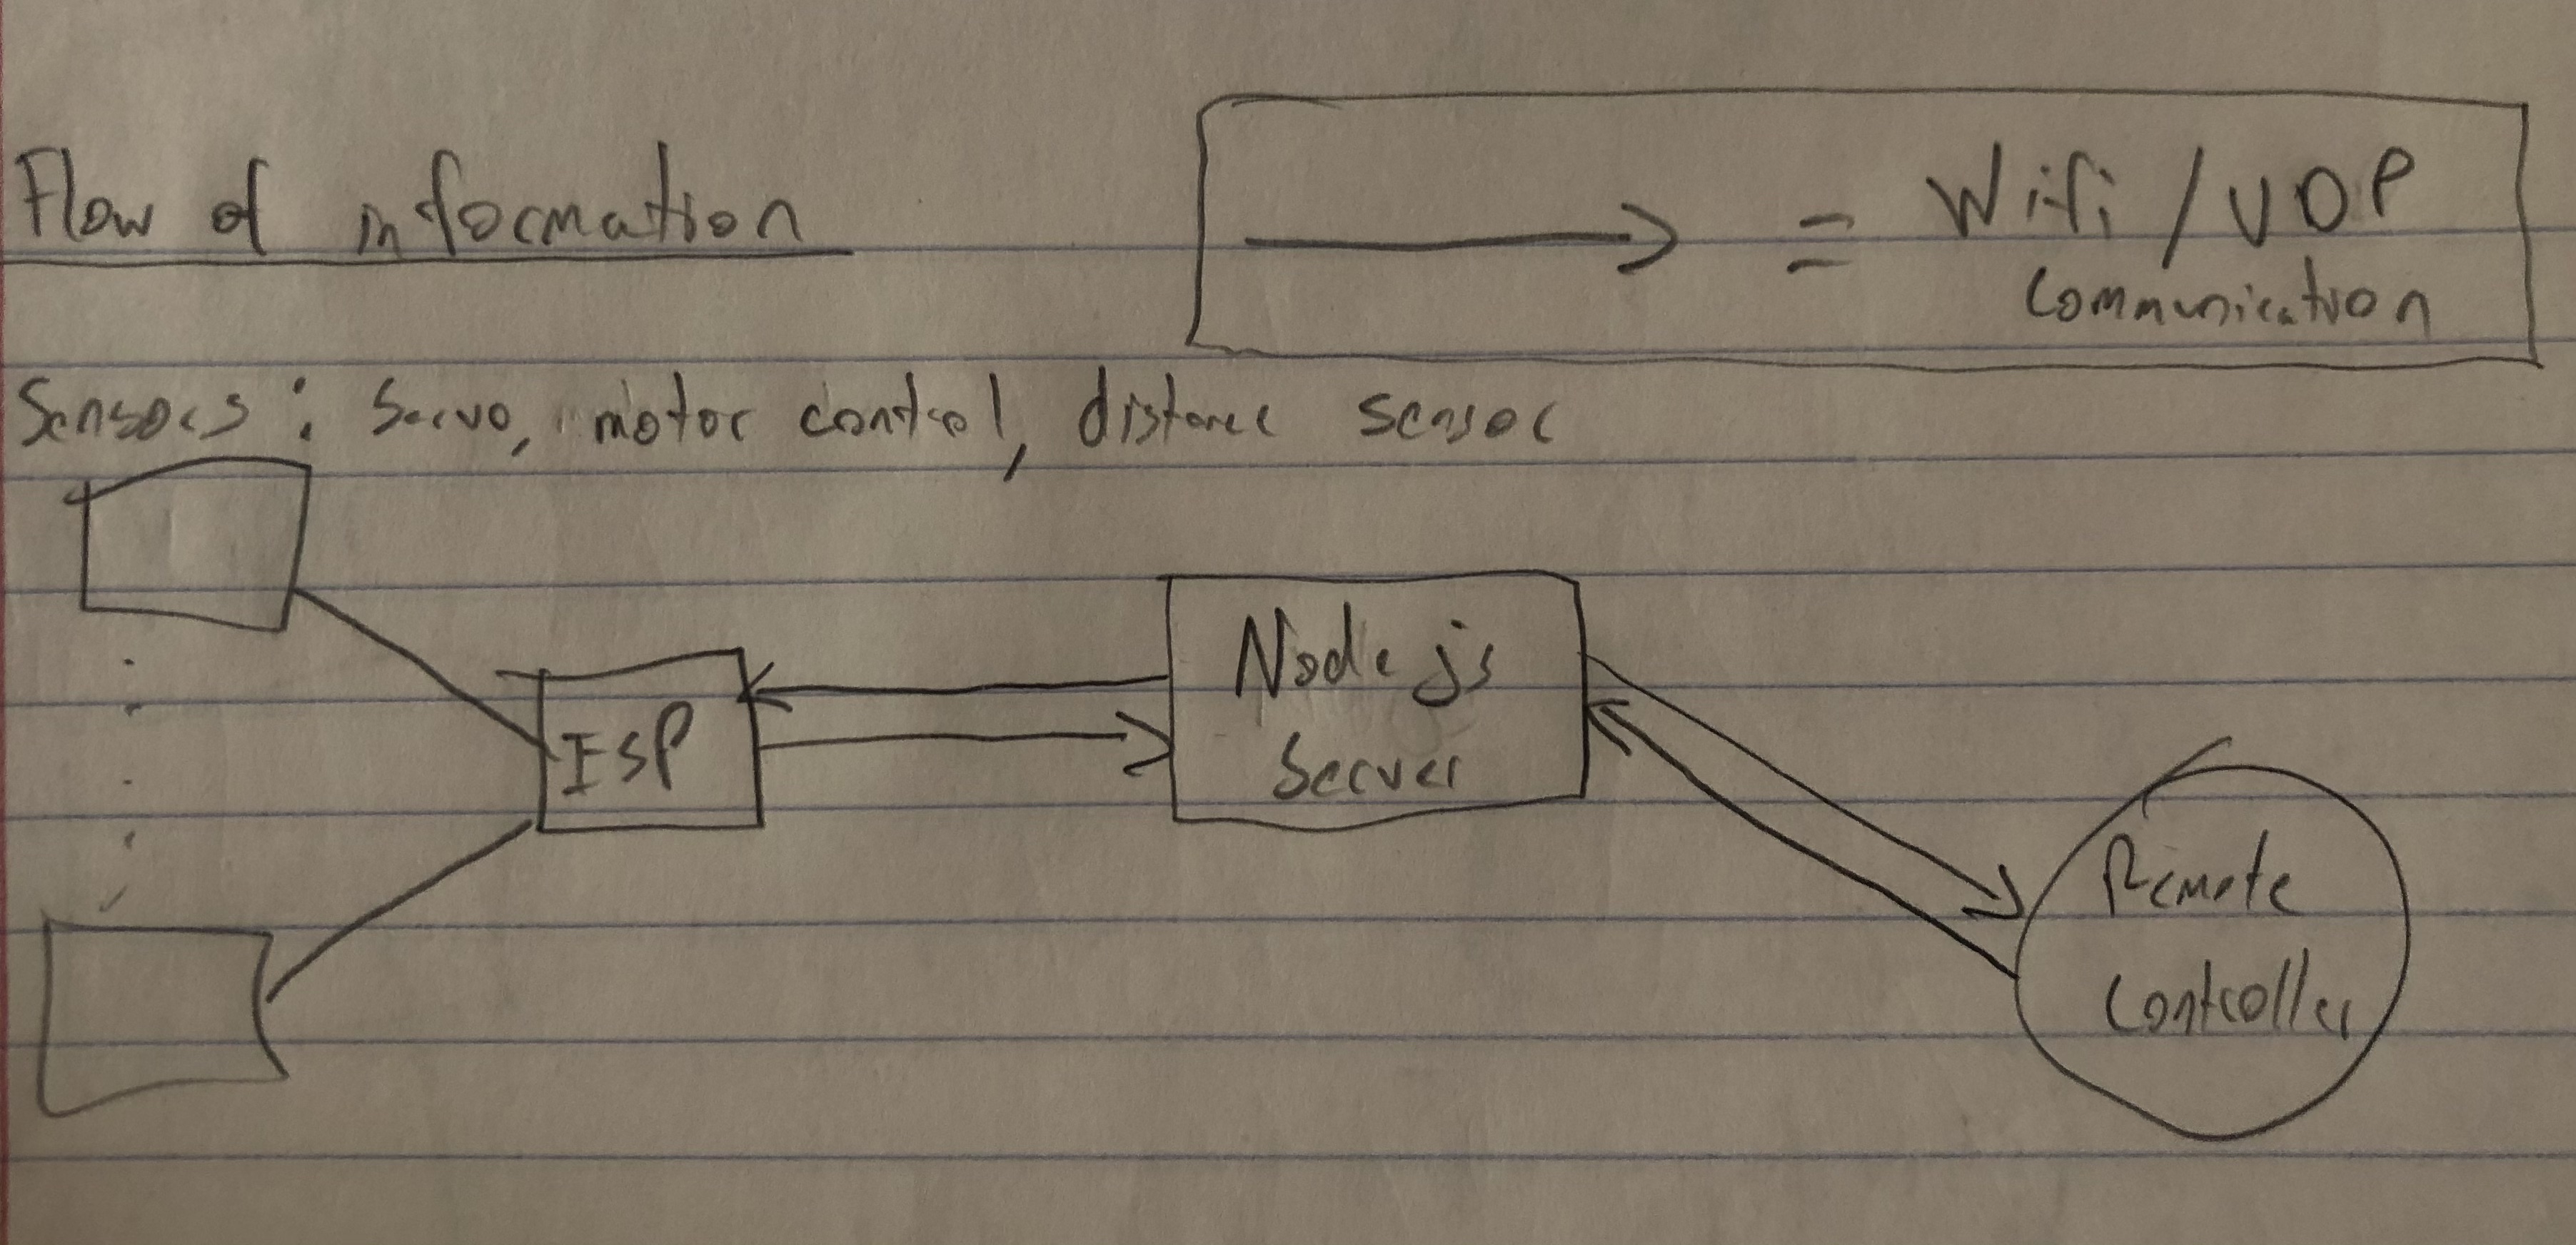 Flow of information
→ = Wifi / UDP
Communication
Sensors: Servo, motor control, distance sensor
Node js
Server
ESP
Remote
Controller